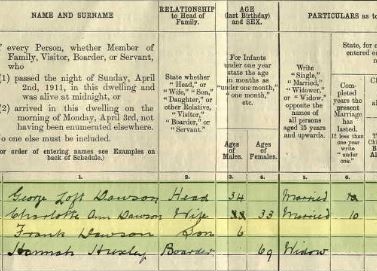 NAME AND SURNAME
RELATIONSHIP
to Head of
Family.
AGE
(last Birthday)
and SEX.
PARTICULARS as to
f every Person, whether Member of
Family, Visitor, Boarder, or Servant,
who
(1) passed the night of Sunday, April
2nd, 1911, in this dwelling and
was alive at midnight, or
(2) arrived in this dwelling on the
morning of Monday, April 3rd, not
having been enumerated elsewhere.
No one else must be included.
(For order of entering names see Examples on
back of Schedule.)
State whether
"Head," or
"Wife," "Son,"
"Daughter," or
other Relative,
"Visitor,"
"Boarder," or
"Servant."
For Infants
under one year
state the
age in months as
"under one month,"
"one month,"
etc.
Ages
of
Males.
Ages
of
Females.
Write
"Single,"
"Married,"
"Widower,"
or "Widow,"
opposite the
names of
all persons
aged 15 years
and upwards.
State, for
entered
Com-
pleted
years the
present
Marriage
has
lasted.
If less than
one year
write
"under
one."
1.
2.
3.
4.
5.
6.
George Loft Dawson Head 34 Married
Charlotte Ann Dawson Wife 33 Married 10
Frank Dawson Son 6
Hannah Boarder 69 Widow